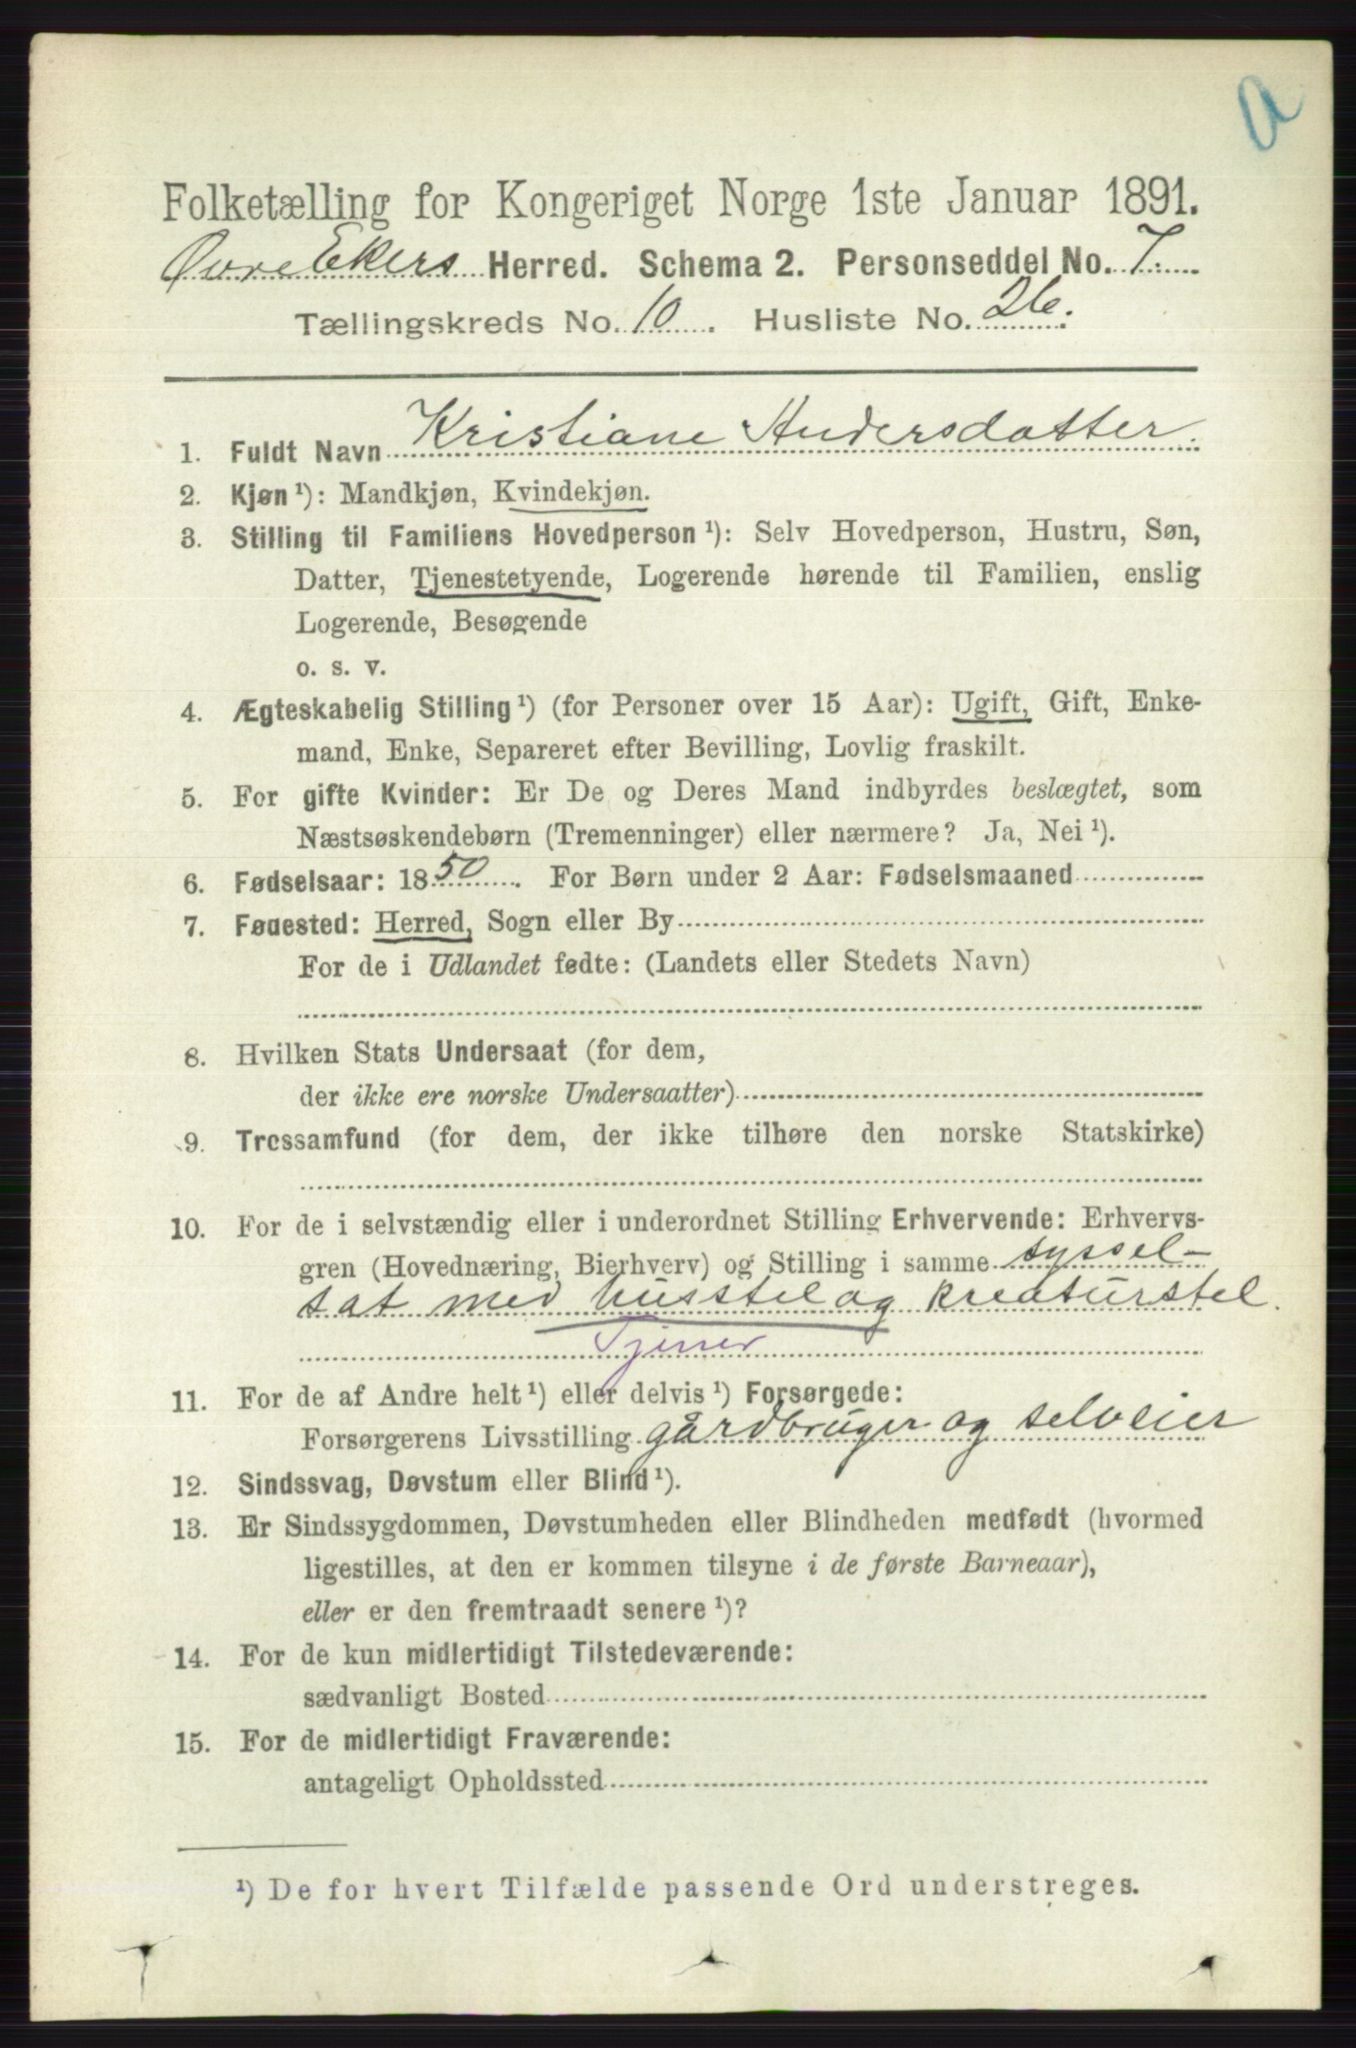 a
Folketælling for Kongeriget Norge 1ste Januar 1891.
Øvre Ekers Herred. Schema 2. Personseddel No. 7.
Tællingskreds No. 10. Husliste No. 26.
1. Fuldt Navn Kristiane Andersdatter.
2. Kjøn ¹): Mandkjøn, Kvindekjøn.
3. Stilling til Familiens Hovedperson ¹): Selv Hovedperson, Hustru, Søn,
Datter, Tjenestetyende, Logerende hørende til Familien, enslig
Logerende, Besøgende
o. s. v.
4. Ægteskabelig Stilling ¹) (for Personer over 15 Aar): Ugift, Gift, Enke-
mand, Enke, Separeret efter Bevilling, Lovlig fraskilt.
5. For gifte Kvinder: Er De og Deres Mand indbyrdes beslægtet, som
Næstsøskendebørn (Tremenninger) eller nærmere? Ja, Nei ¹).
6. Fødselsaar: 1850. For Børn under 2 Aar: Fødselsmaaned
7. Fødested: Herred, Sogn eller By
For de i Udlandet fødte: (Landets eller Stedets Navn)
8. Hvilken Stats Undersaat (for dem,
der ikke ere norske Undersaatter)
9. Trossamfund (for dem, der ikke tilhøre den norske Statskirke)
10. For de i selvstændig eller i underordnet Stilling Erhvervende: Erhvervs-
gren (Hovednæring, Bierhverv) og Stilling i samme syssel-
sat med husstel og kreaturstel.
Tjener
11. For de af Andre helt ¹) eller delvis ¹) Forsørgede:
Forsørgerens Livsstilling gårdbruger og selveier
12. Sindssvag, Døvstum eller Blind ¹).
13. Er Sindssygdommen, Døvstumheden eller Blindheden medfødt (hvormed
ligestilles, at den er kommen tilsyne i de første Barneaar),
eller er den fremtraadt senere ¹)?
14. For de kun midlertidigt Tilstedeværende:
sædvanligt Bosted
15. For de midlertidigt Fraværende:
antageligt Opholdssted
¹) De for hvert Tilfælde passende Ord understreges.